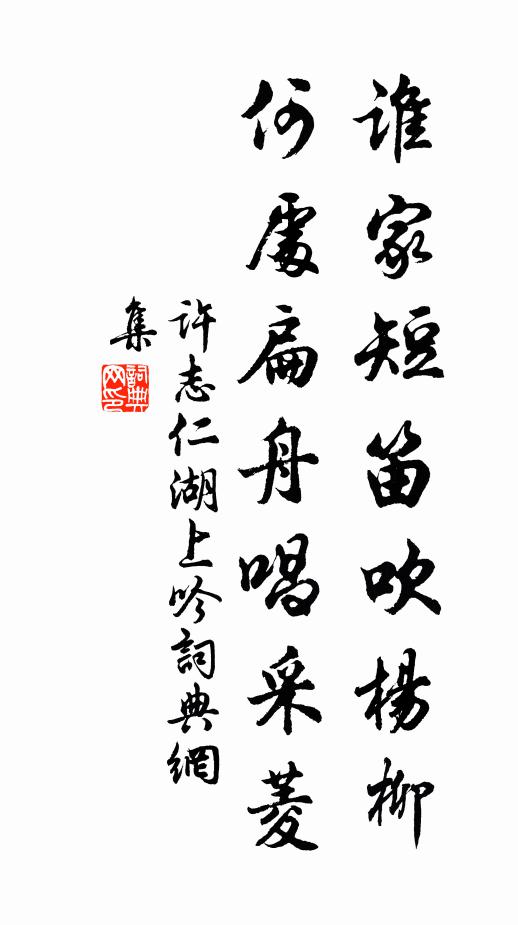 誰家短笛吹楊柳
何處扁舟唱采菱
許志仁湖上吟詞典網
集
詞典网印